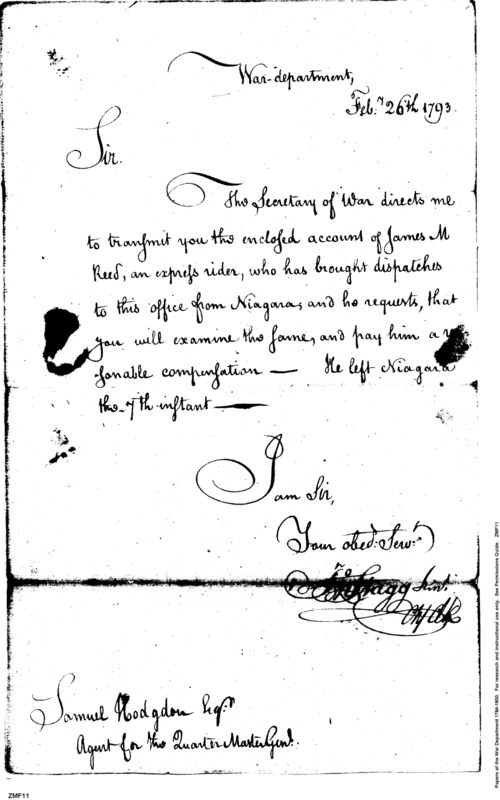 War-department,
Feb.y 26th 1793.
Sir.
The Secretary of War directs me
to transmit you the enclosed account of James M
Reed, an express rider, who has brought dispatches
to this office from Niagara, and he requests, that
you will examine the same, and pay him a
sonable compensation — He left Niagara
the 7th instant —
I am Sir,
Your obed.t Serv.t
Jno Stagg Junr.
Samuel Hodgdon Esqr.
Agent for the Quarter Master Genl.
ZMF11
Papers of the War Department 1784-1800. For research and instructional use only. See Permissions Guide. ZMF11